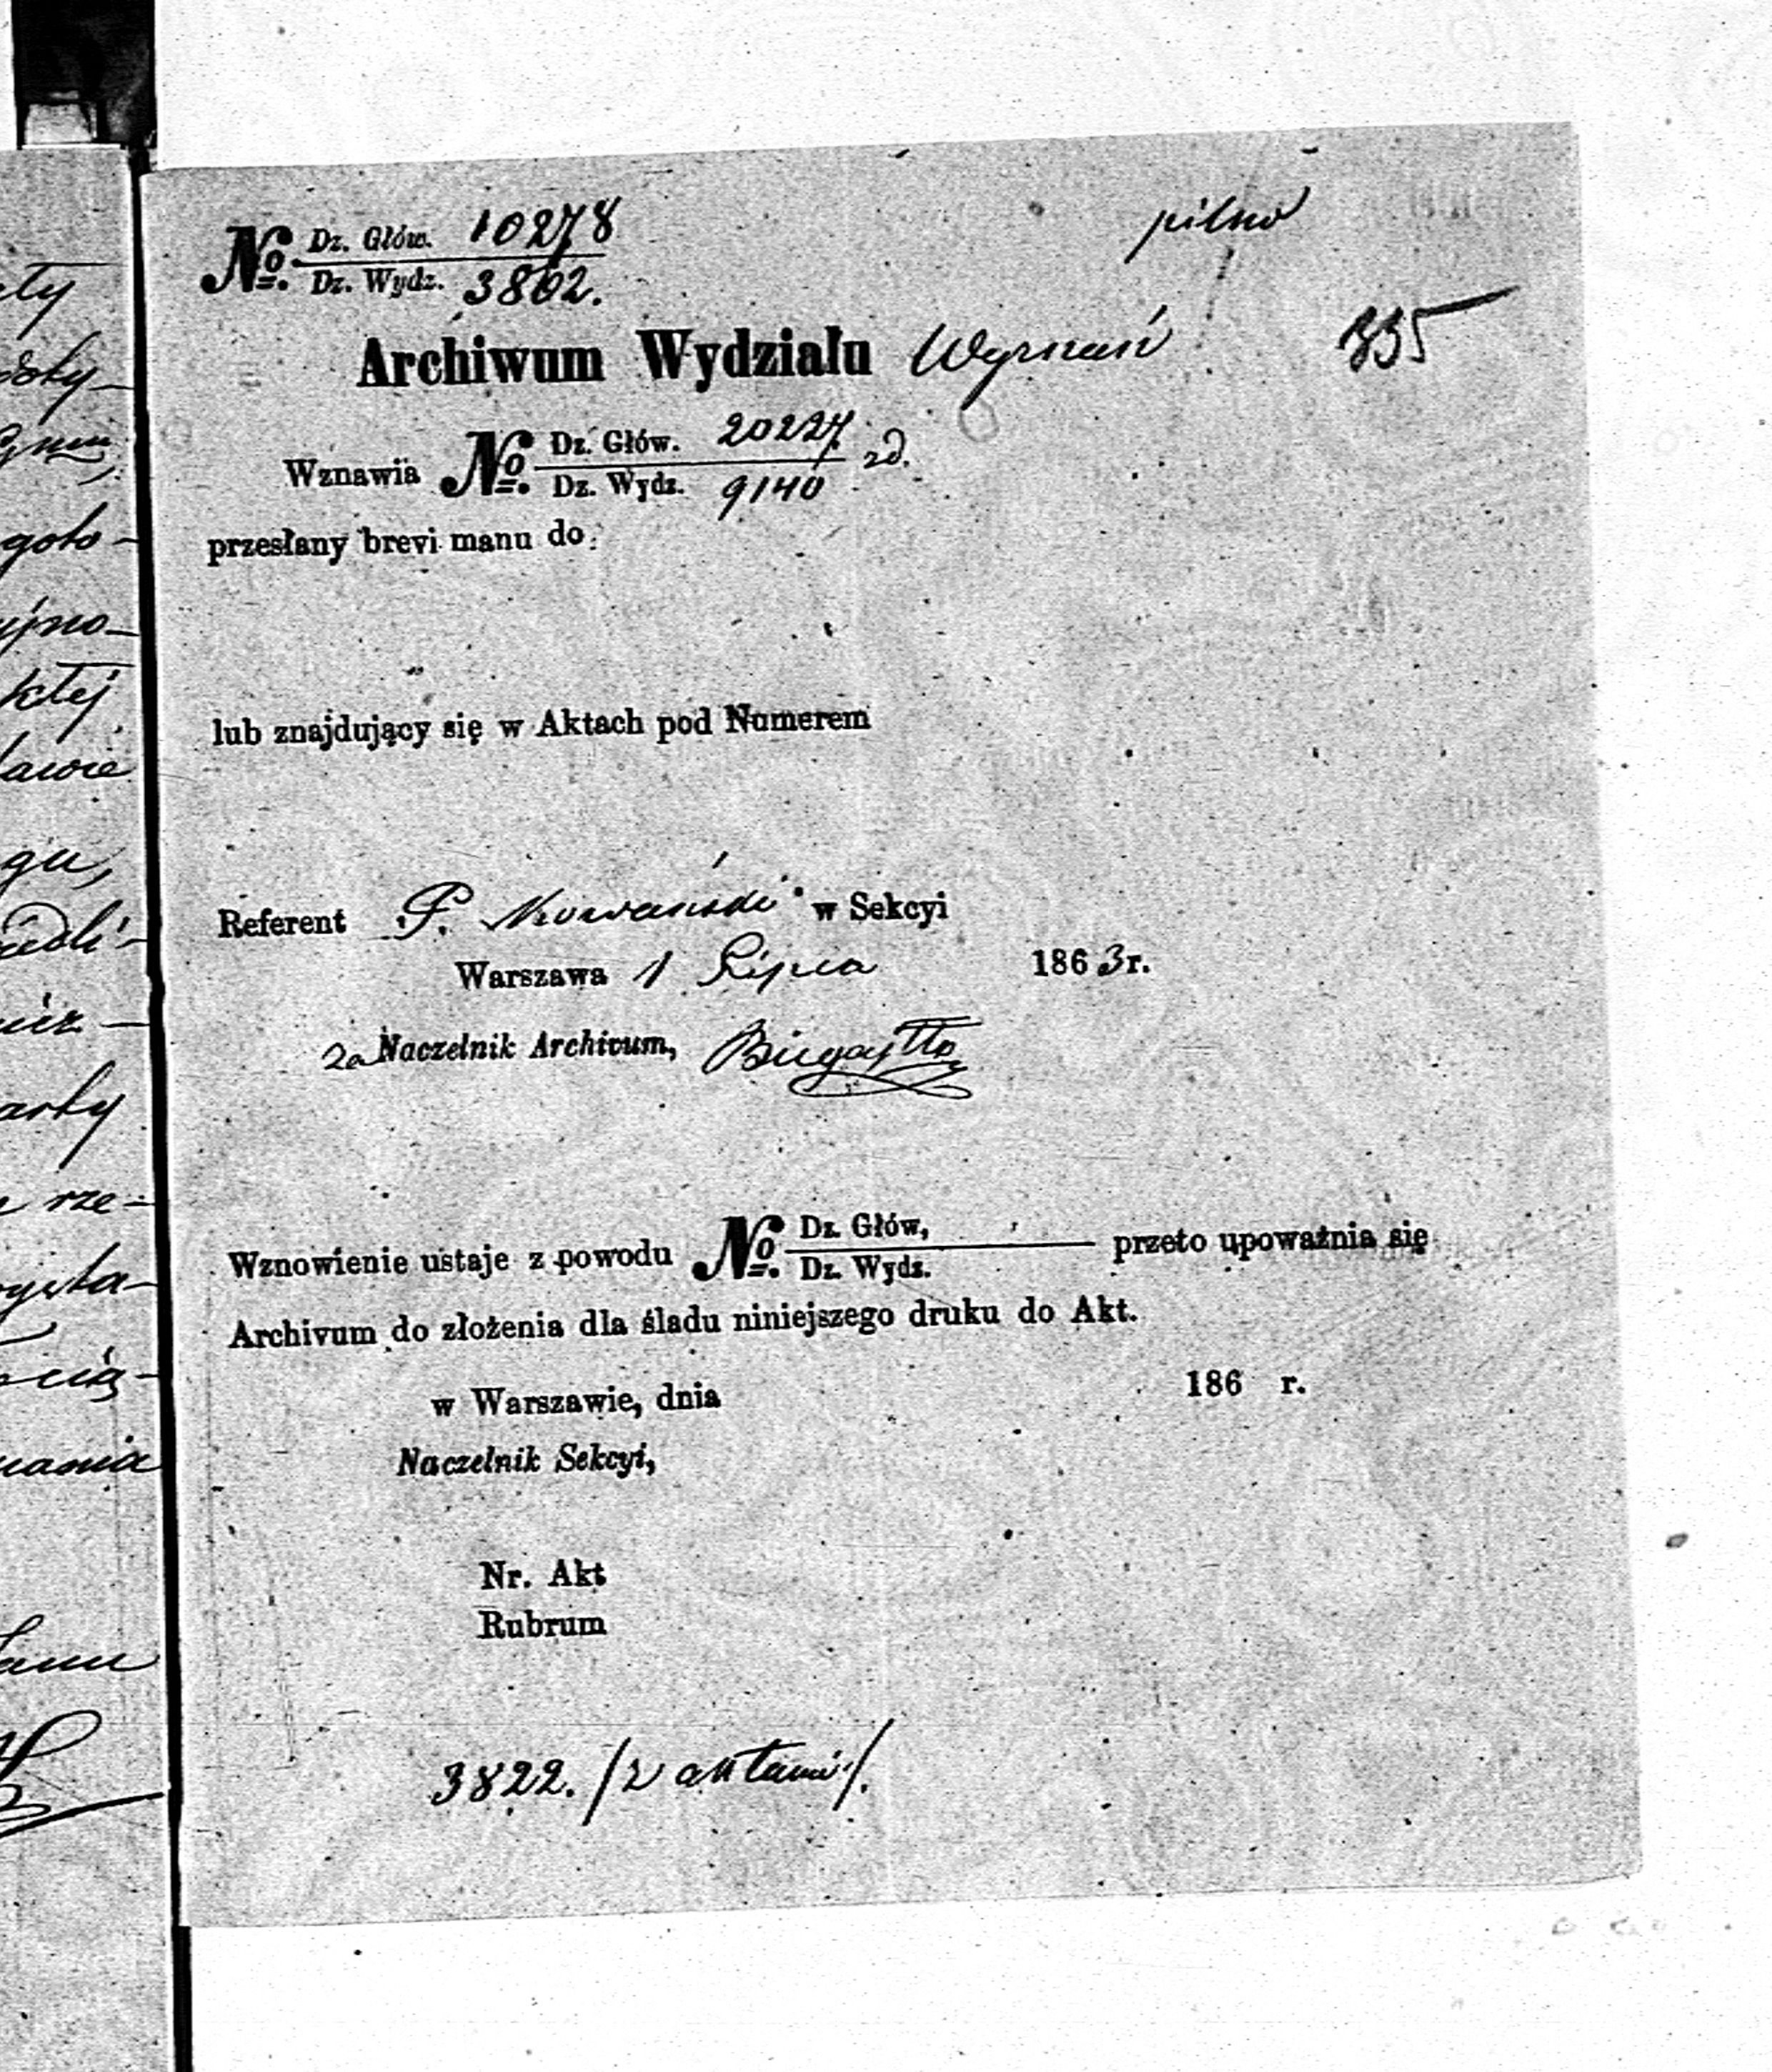 ty
goto-
ijno-
kłej
gu,
arty
rze-
cią-
wania
№ Dz. Głów. 10278
Dz. Wydz. 3862.
pilno
!
335
Archiwum Wydziału Wyznań
Wznawia № Dz. Głów. 20227
Dz. Wydz. 9140
przesłany brevi manu do:
lub znajdujący się w Aktach pod Numerem
Referent P. w Sekcyi
Warszawa 1 Lipca 1863 r.
za Naczelnik Archivum,
Wznowienie ustaje z powodu № Dz. Głów, przeto upoważnia się
Dz. Wydz.
Archivum do złożenia dla śladu niniejszego druku do Akt.
w Warszawie, dnia 186 r.
Naczelnik Sekcyi,
Nr. Akt
Rubrum
3822. /z aktami/.